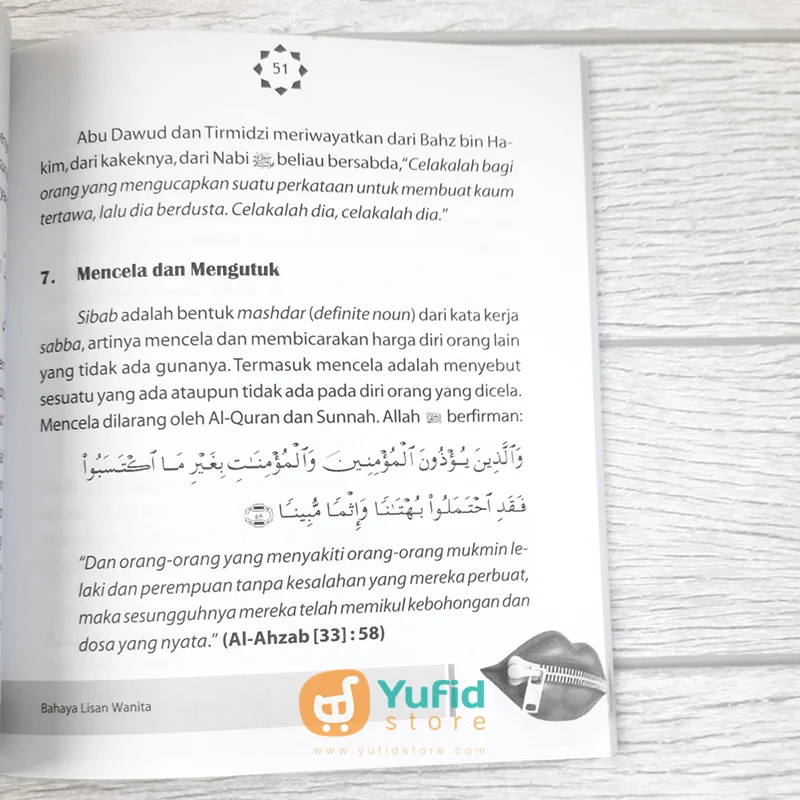 51
Abu Dawud dan Tirmidzi meriwayatkan dari Bahz bin Ha-
kim, dari kakeknya, dari Nabi ﷺ, beliau bersabda, “Celakalah bagi
orang yang mengucapkan suatu perkataan untuk membuat kaum
tertawa, lalu dia berdusta. Celakalah dia, celakalah dia.”
7. Mencela dan Mengutuk
Sibab adalah bentuk mashdar (definite noun) dari kata kerja
sabba, artinya mencela dan membicarakan harga diri orang lain
yang tidak ada gunanya. Termasuk mencela adalah menyebut
sesuatu yang ada ataupun tidak ada pada diri orang yang dicela.
Mencela dilarang oleh Al-Quran dan Sunnah. Allah berfirman:
وَٱلَّذِينَ يُؤْذُونَ ٱلْمُؤْمِنِينَ وَٱلْمُؤْمِنَٰتِ بِغَيْرِ مَا ٱكْتَسَبُوا۟
فَقَدِ ٱحْتَمَلُوا۟ بُهْتَٰنًا وَإِثْمًا مُّبِينًا ٥٨
“Dan orang-orang yang menyakiti orang-orang mukmin le-
laki dan perempuan tanpa kesalahan yang mereka perbuat,
maka sesungguhnya mereka telah memikul kebohongan dan
dosa yang nyata.” (Al-Ahzab [33] : 58)
Bahaya Lisan Wanita
Yufid
store
www.yufidstore.com